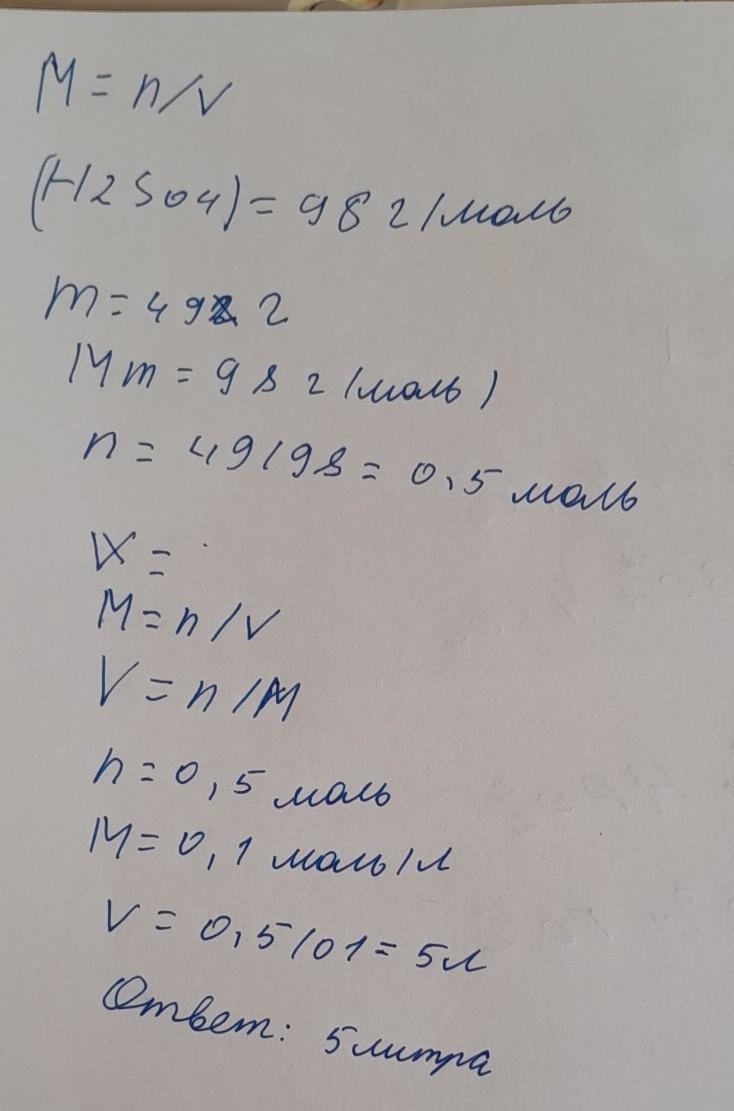 M = n/V
(H2SO4) = 98 г/моль
m = 49 г
Mm = 98 г/моль)
n = 49/98 = 0,5 моль
M = n/V
V = n/M
n = 0,5 моль
M = 0,1 моль/л
V = 0,5/01 = 5л
Ответ: 5 литра